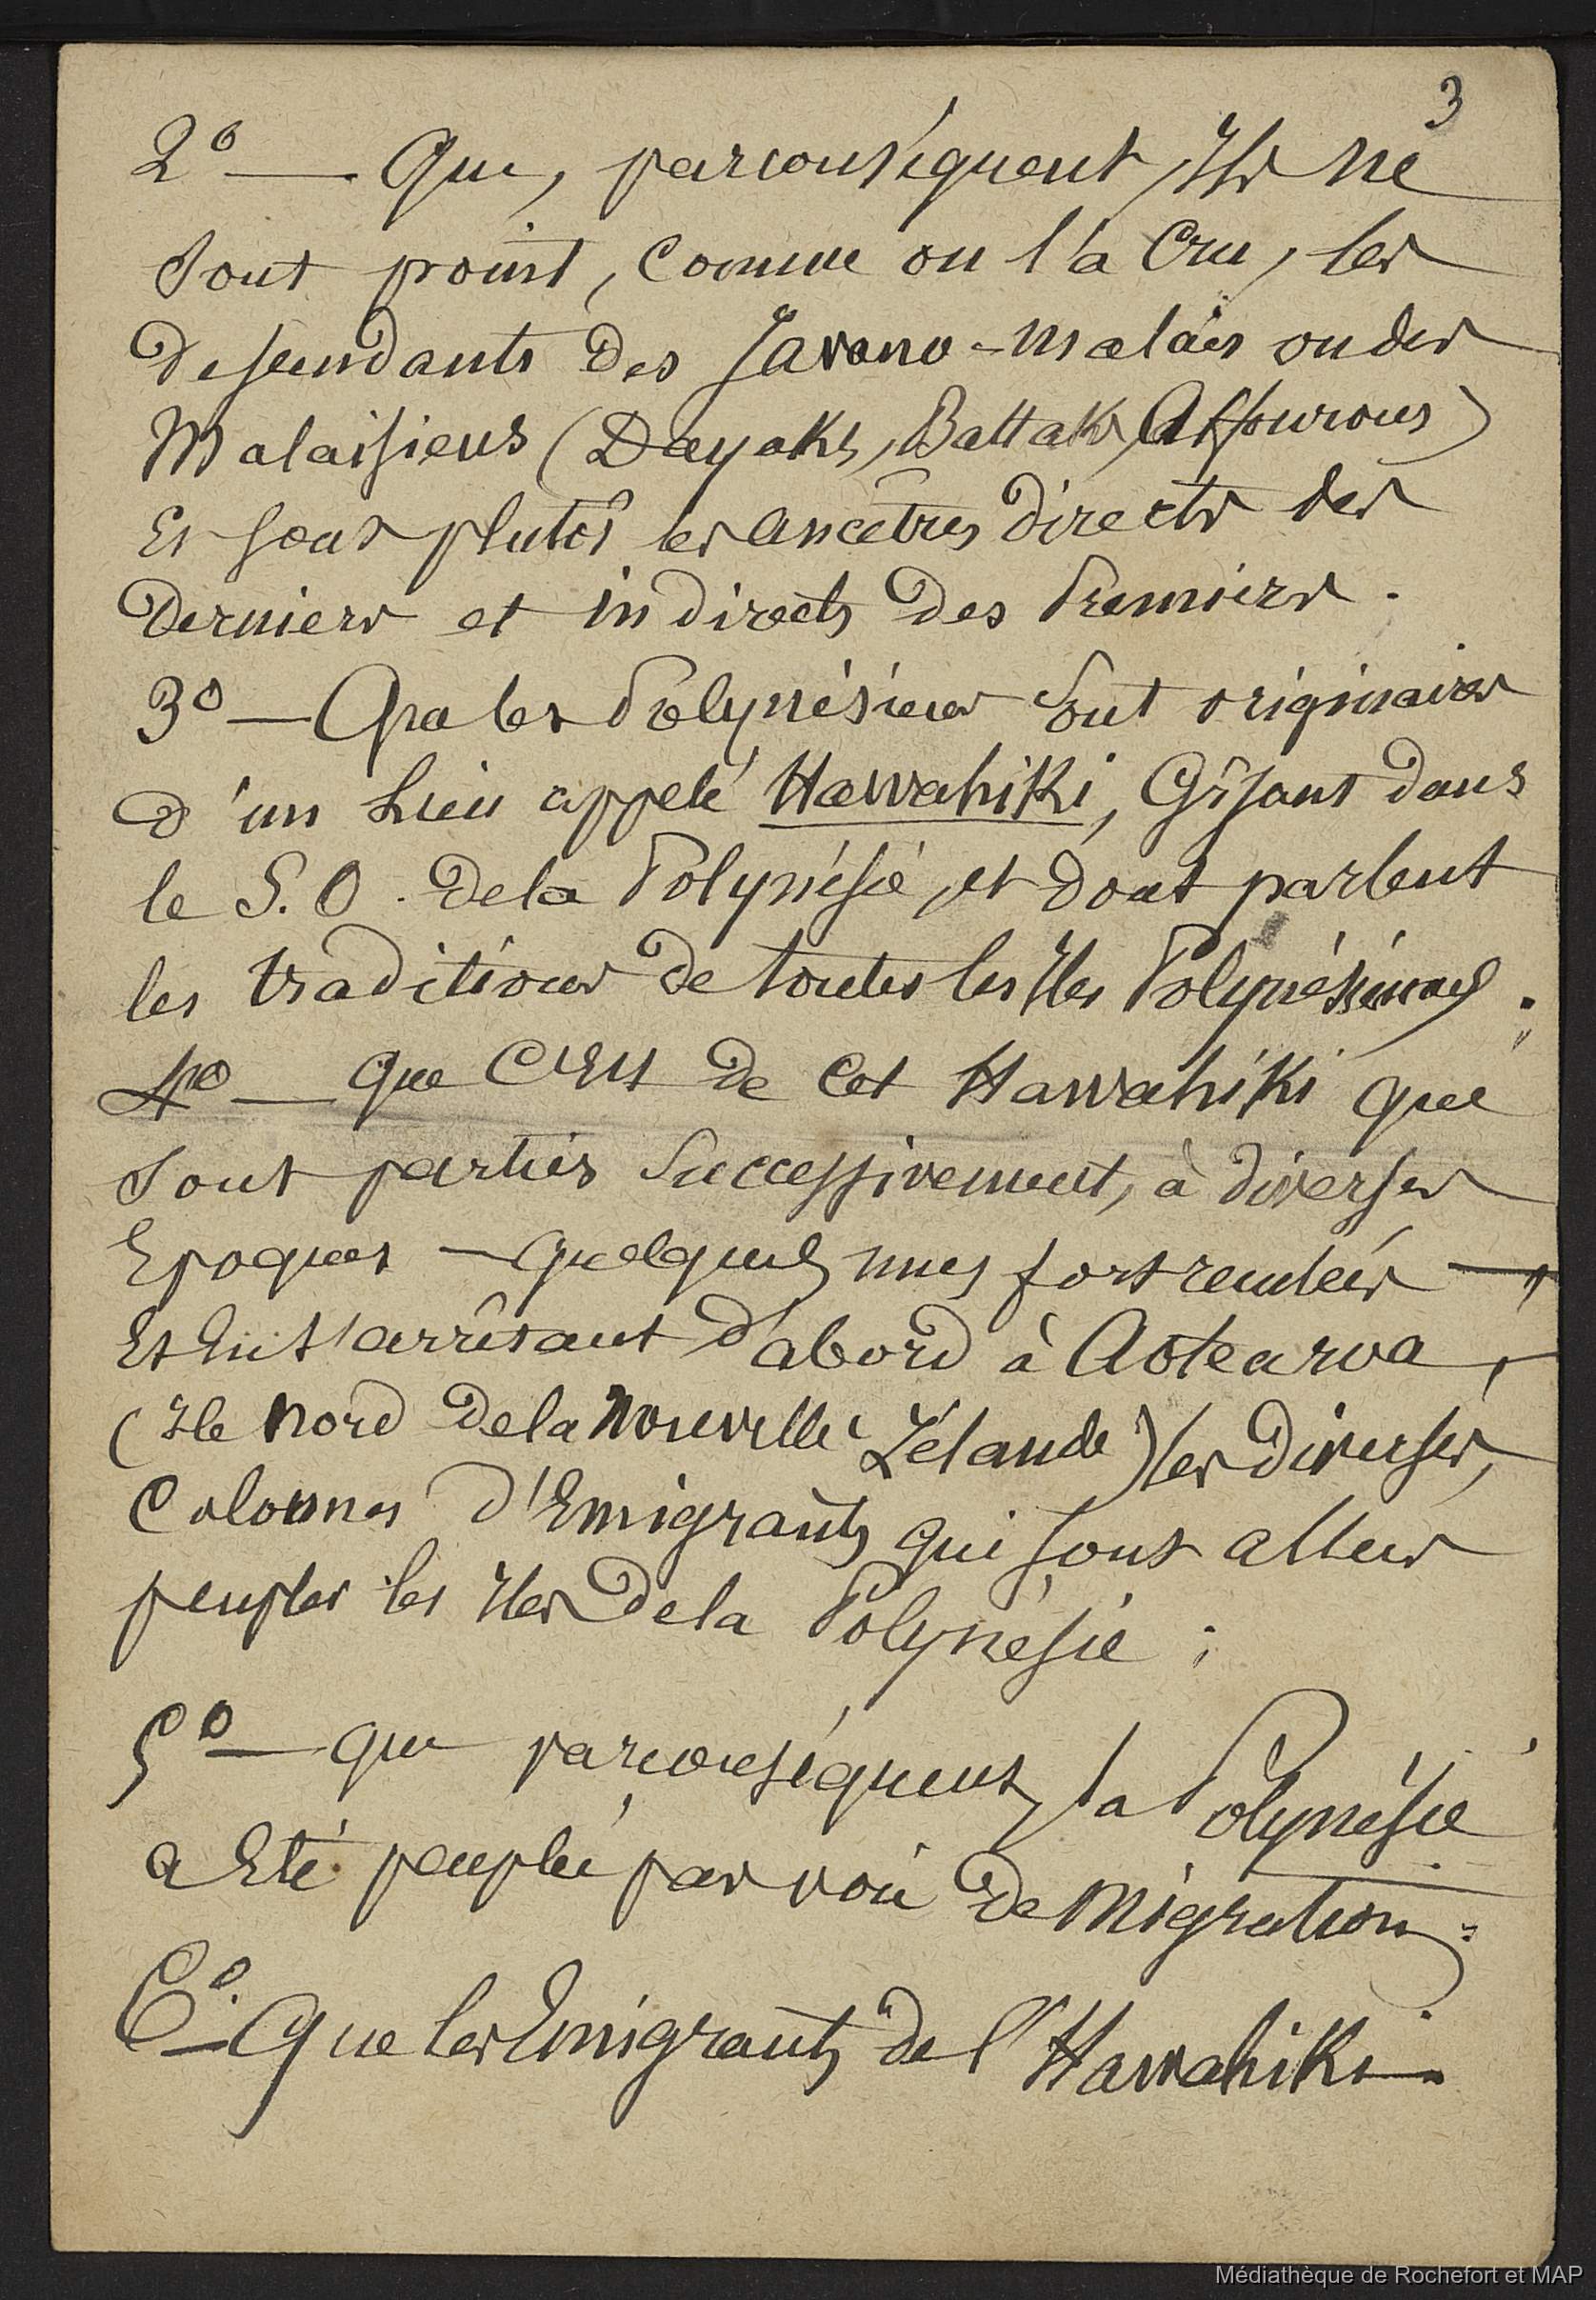 3
2° — Que, parconséquent, Ils ne
sont point, comme on l'a Cru, les
descendants des Javano-malais ou des
Malaisiens (Dayaks, Battaks, Alfourous)
Et sont plutôt les ancêtres directs des
Derniers et indirects des Premiers.
3° — Que les Polynésiens sont originaires
d'un Lieu appelé Hawahiki, Gisant dans
le S.O. de la Polynésie, et dont parlent
les traditions de toutes les Iles Polynésiennes;
4° — que C'Est de cet Hawahiki que
sont parties successivement, à diverses
Epoques — quelques unes fort reculées —,
Et En s'arrêtant d'abord à Aotearoa,
(Ile Nord de la Nouvelle Zélande) les diverses,
Colonnes d'Emigrants qui sont allées
peupler les Iles de la Polynésie;
5° — que parconséquent, la Polynésie
a Eté peuplée par voie de Migration;
6° — Que les Emigrants de l'Hawahiki
Médiathèque de Rochefort et MAP